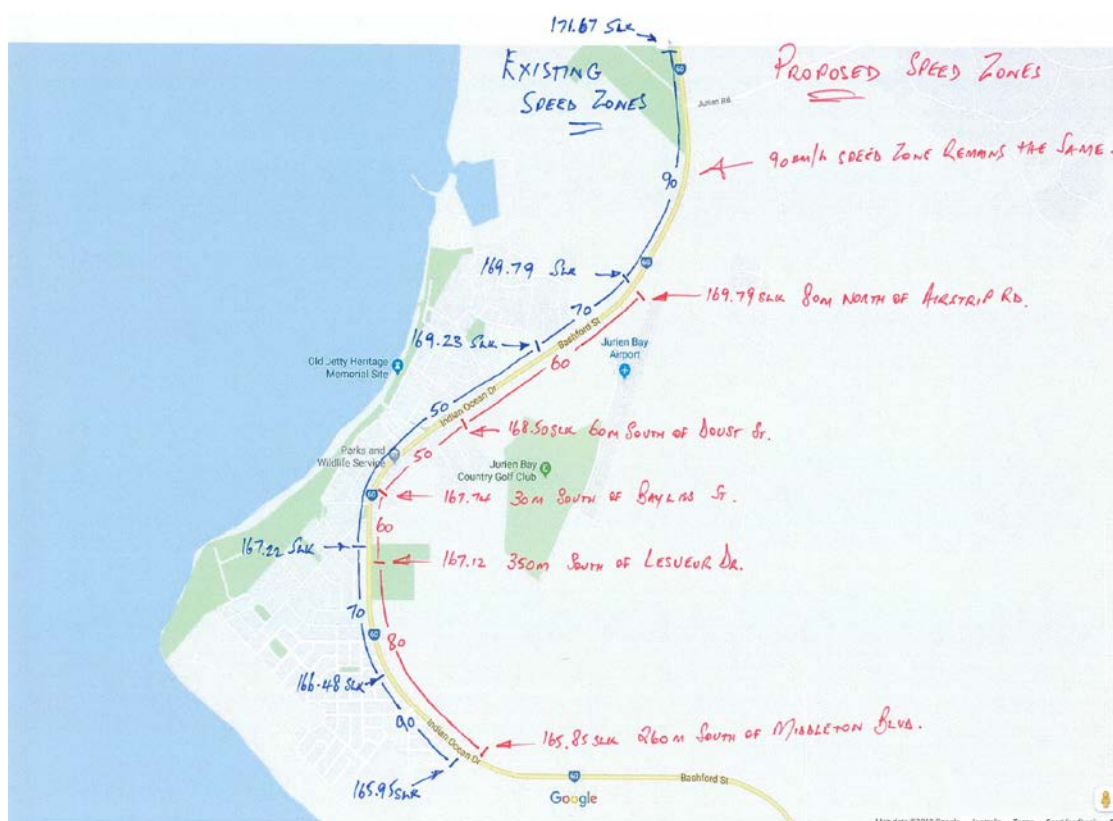 171.67 SLK
EXISTING
SPEED ZONES
PROPOSED SPEED ZONES
60
Jurien Rd
90 km/h SPEED ZONE REMAINS THE SAME.
90
169.79 SLK
60
169.79 SLK 80m NORTH OF AIRSTRIP RD.
70
Bashford St
169.23 SLK
Jurien Bay
Airport
60
Old Jetty Heritage
Memorial Site
50
Indian Ocean Dr
168.50 SLK 60m SOUTH OF DOUST ST.
50
Parks and
Wildlife Service
Jurien Bay
Country Golf Club
60
167.74 30m SOUTH OF BAYLISS ST.
60
167.22 SLK
167.12 350m SOUTH OF LESUEUR DR.
70
60
80
166.48 SLK
90
Indian Ocean Dr
165.85 SLK 260m SOUTH OF MIDDLETON BLVD.
165.95 SLK
60
Bashford St
Google